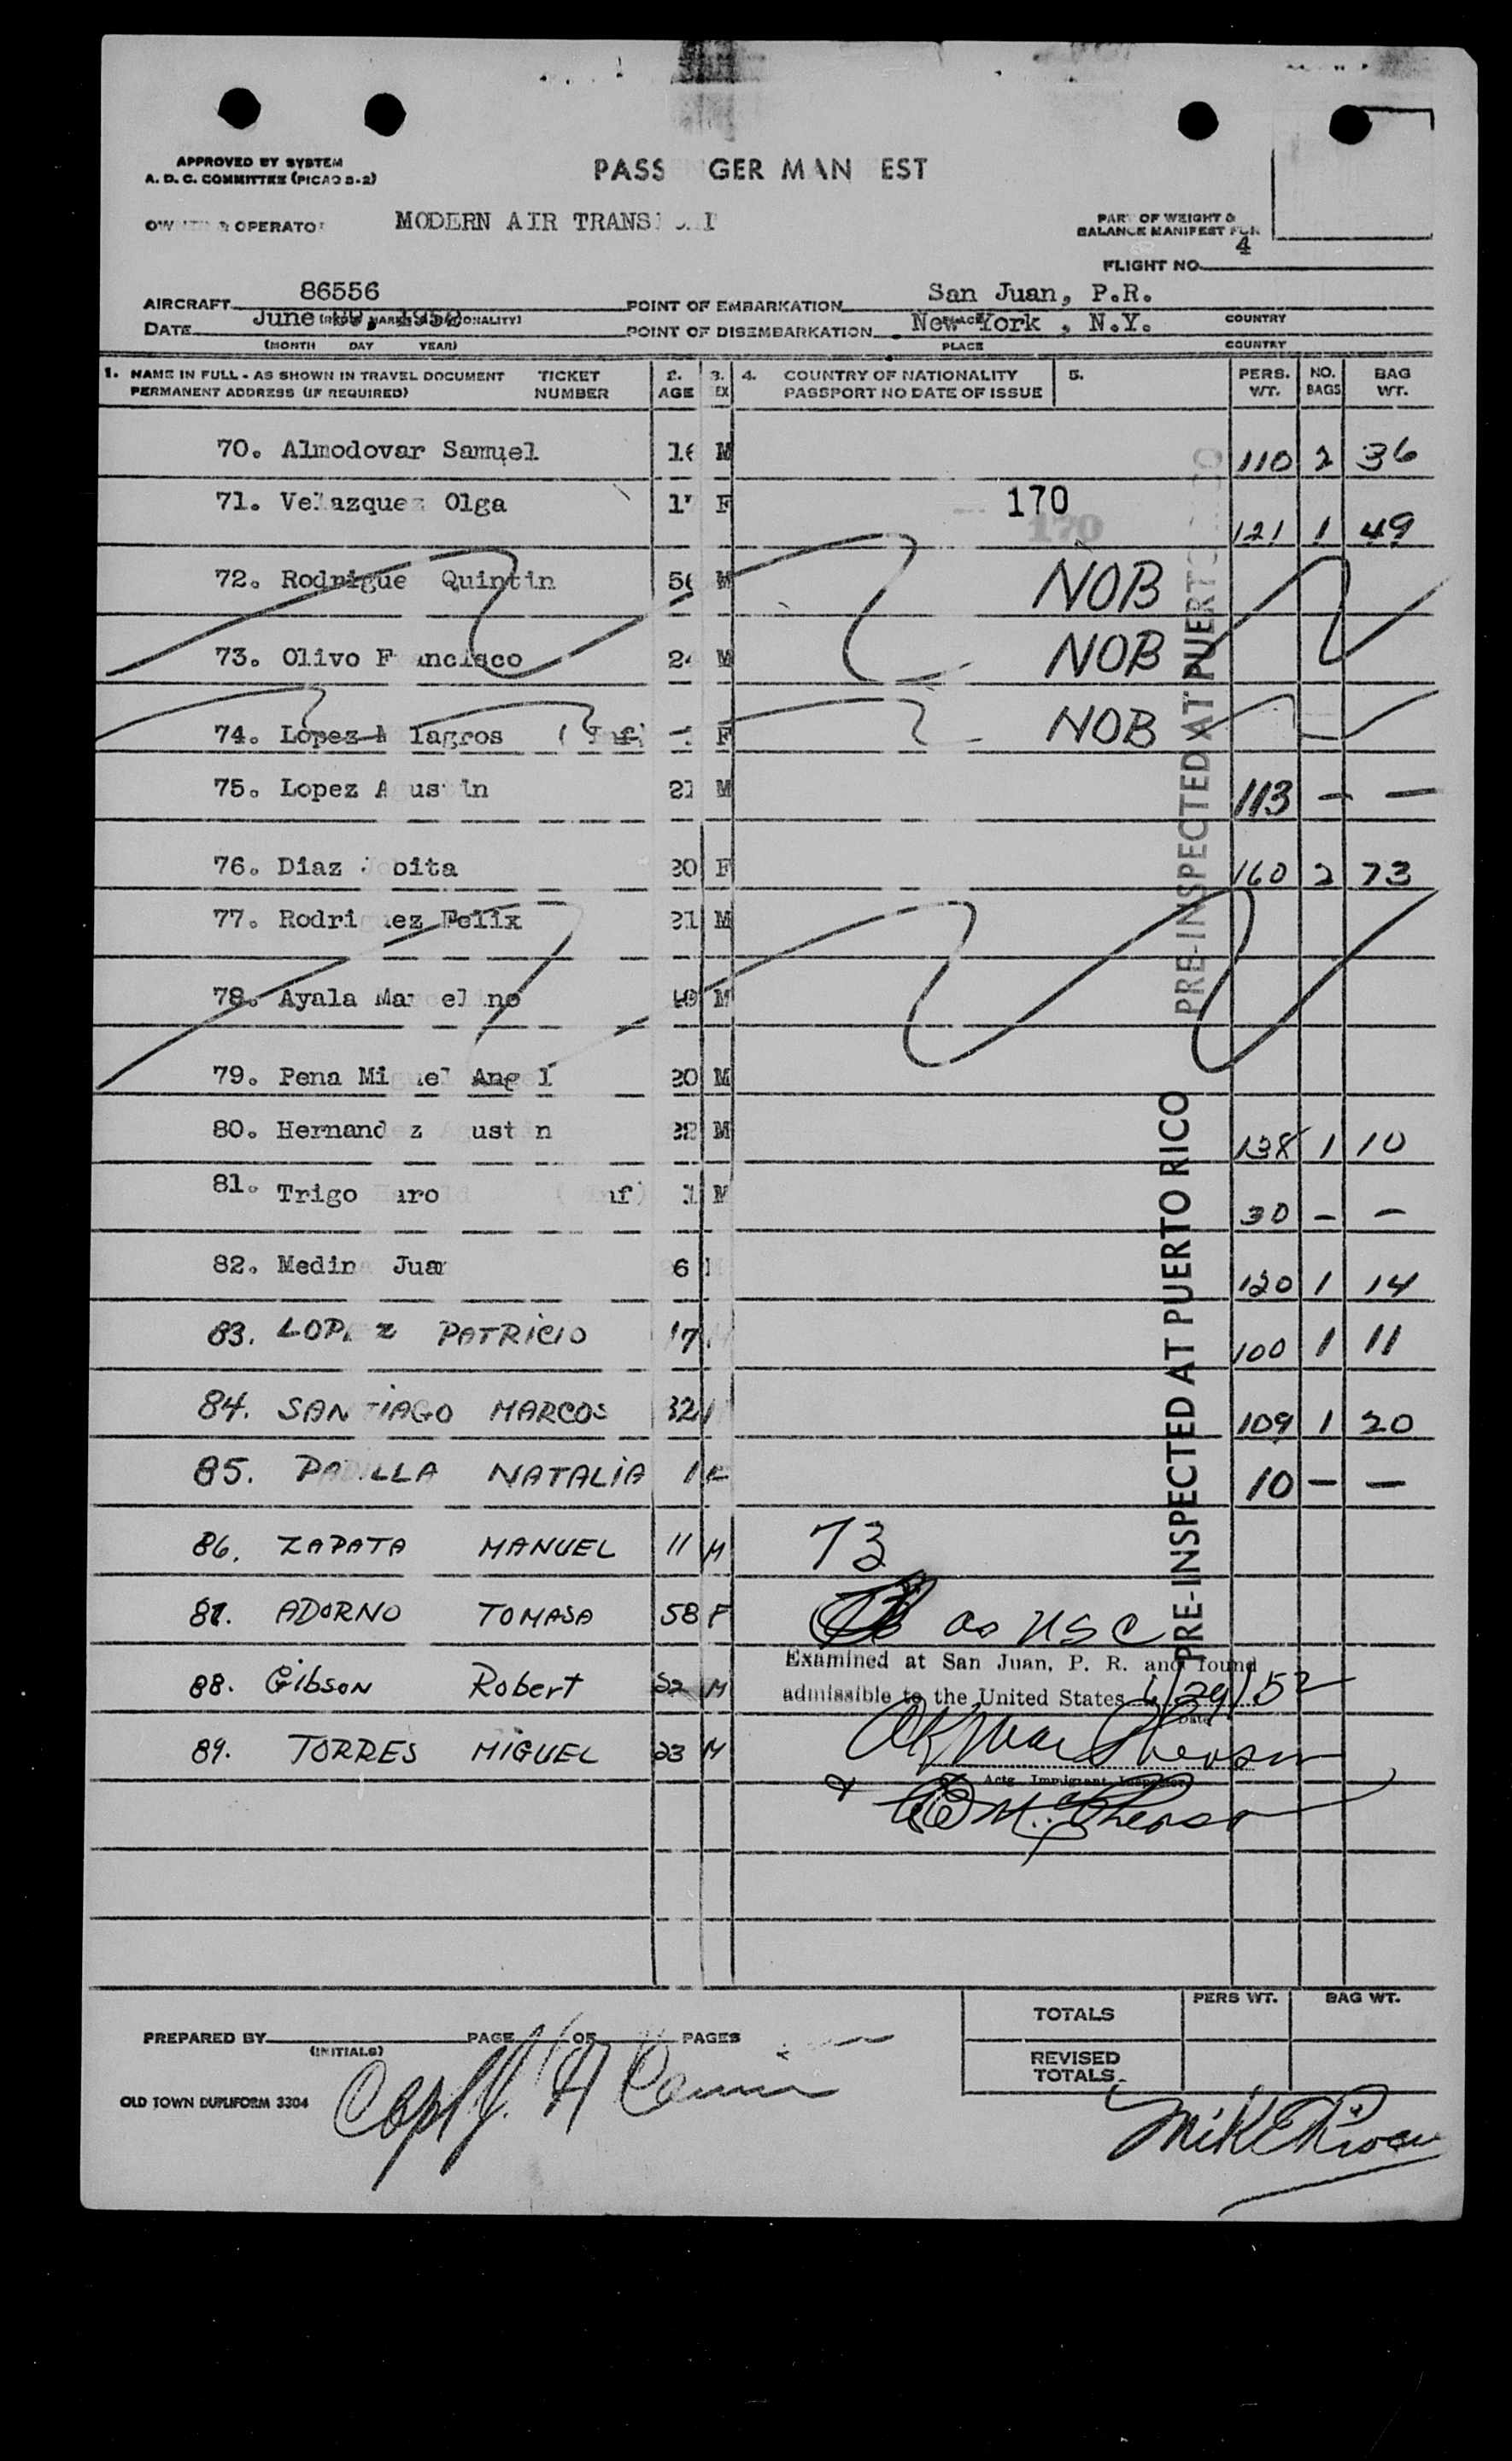 APPROVED BY SYSTEM
A. D. C. COMMITTEE (PICAO S-2)
PASS GER MAN EST
OPERATO MODERN AIR TRANS
PART OF WEIGHT &
BALANCE MANIFEST FOR
FLIGHT NO. 4
AIRCRAFT 86556 POINT OF EMBARKATION San Juan, P.R.
DATE June 1952 POINT OF DISEMBARKATION New York, N.Y. COUNTRY
(MONTH DAY YEAR) PLACE COUNTRY
1. NAME IN FULL - AS SHOWN IN TRAVEL DOCUMENT TICKET 2. 3. 4. COUNTRY OF NATIONALITY 5. PERS. NO. BAG
PERMANENT ADDRESS (IF REQUIRED) NUMBER AGE EX PASSPORT NO DATE OF ISSUE WT. BAGS WT.
70. Almodovar Samuel 16 M 110 2 36
71. Velazquez Olga 1 F 170 121 1 49
72. Rodrigue Quintin 56 M NOB
73. Olivo F ancisco 24 M NOB
74. Lopez M lagros ( Inf) F NOB
75. Lopez A us in 21 M 113 — —
76. Diaz bita 20 F 160 2 73
77. Rodri ez Felix 21 M
78. Ayala Mar el no M
79. Pena Mi uel Ang l 20 M
80. Hernand z ust n 22 M 138 1 10
81. Trigo aro ( nf) 1 M 30 — —
82. Medina Juan 6 120 1 14
83. LOPEZ PATRICIO 17 100 1 11
84. SANTIAGO MARCOS 32 109 1 20
85. PADILLA NATALIA 1 F 10 — —
86. ZAPATA MANUEL 11 M 73
87. ADORNO TOMASA 58 F as USC
88. Gibson Robert 22 M
89. TORRES MIGUEL 23 M
PRE-INSPECTED AT PUERTO RICO
PRE-INSPECTED AT PUERTO RICO
Examined at San Juan, P. R. and found
admissible to the United States 6/29/52
Date
Actg. Immigrant Inspector
TOTALS PERS WT. BAG WT.
PREPARED BY PAGE OF PAGES
(INITIALS)
REVISED
TOTALS
OLD TOWN DUPLIFORM 3304